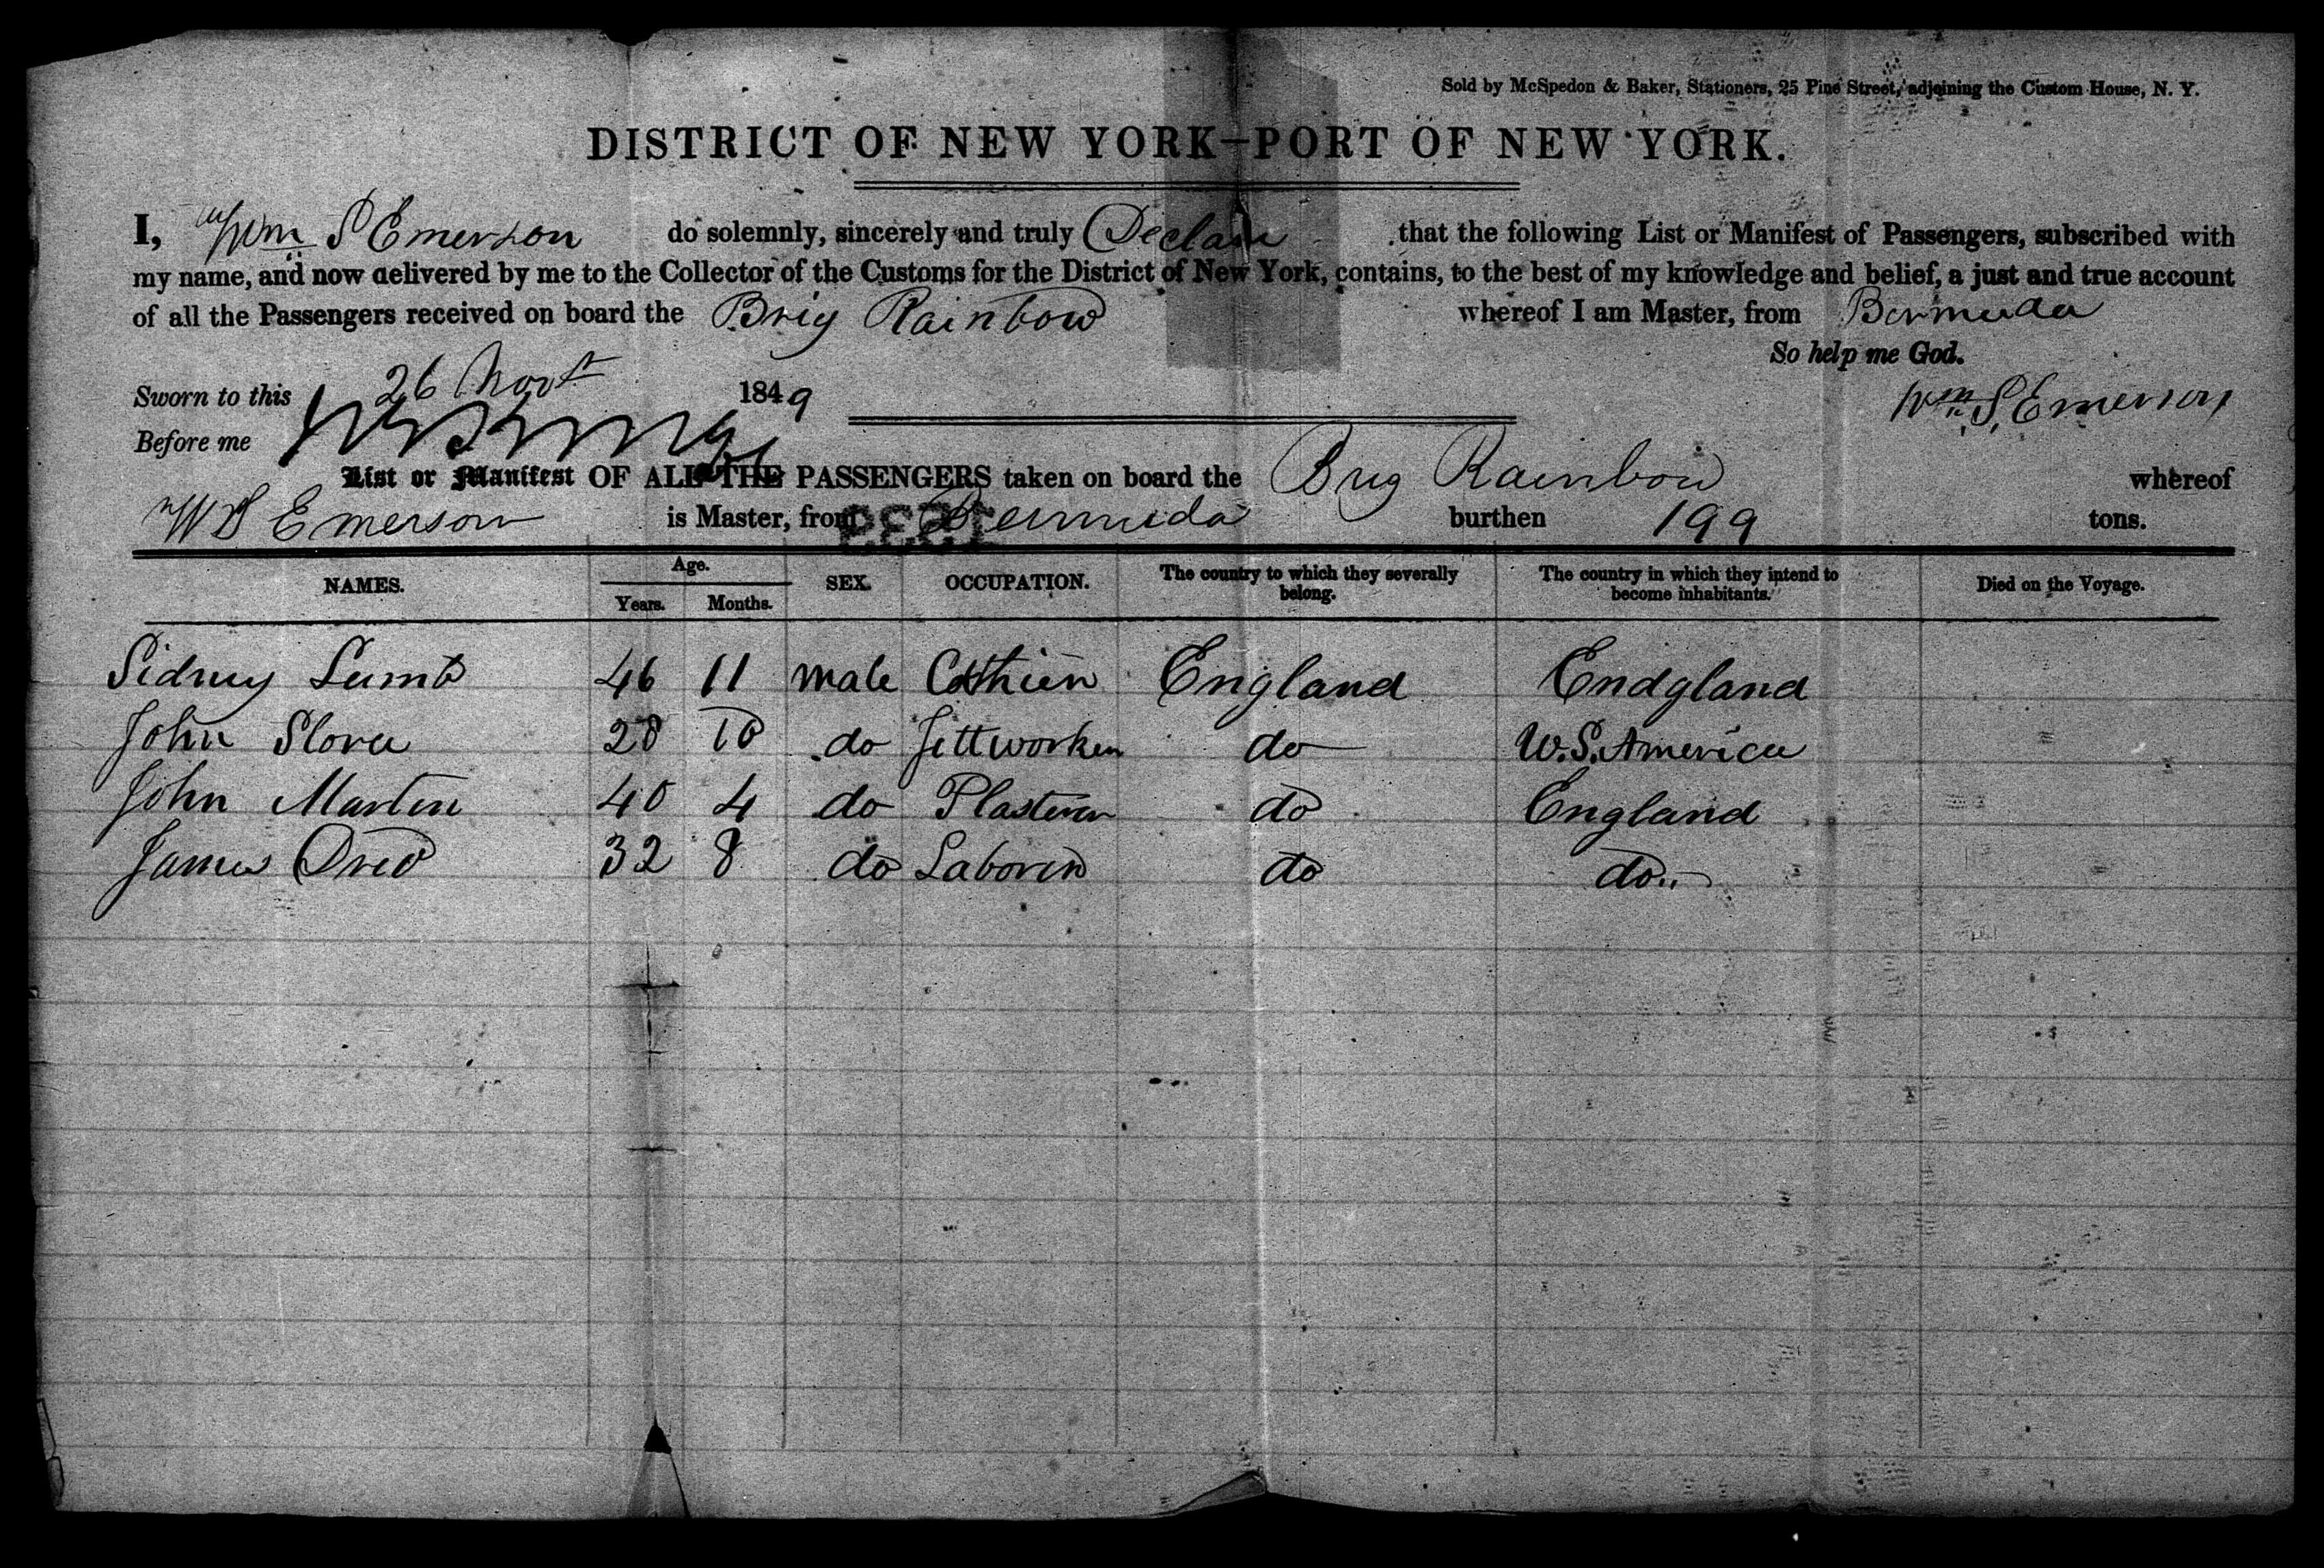 Sold by McSpedon & Baker, Stationers, 25 Pine Street, adjoining the Custom House, N. Y.
DISTRICT OF NEW YORK—PORT OF NEW YORK.
I, Wm S Emerson do solemnly, sincerely and truly Declare that the following List or Manifest of Passengers, subscribed with
my name, and now delivered by me to the Collector of the Customs for the District of New York, contains, to the best of my knowledge and belief, a just and true account
of all the Passengers received on board the Brig Rainbow whereof I am Master, from Bermuda
So help me God.
Sworn to this 26 Novr 1849 Wm S. Emerson
Before me
List or Manifest OF ALL THE PASSENGERS taken on board the Brig Rainbow whereof
W S Emerson is Master, from Bermuda burthen 199 tons.
NAMES. Age. Years. Months. SEX. OCCUPATION. The country to which they severally belong. The country in which they intend to become inhabitants. Died on the Voyage.
Sidney Lumb 46 11 male England Endgland
John 28 10 do do W.S. America
John Marten 40 4 do do England
James 32 8 do do do